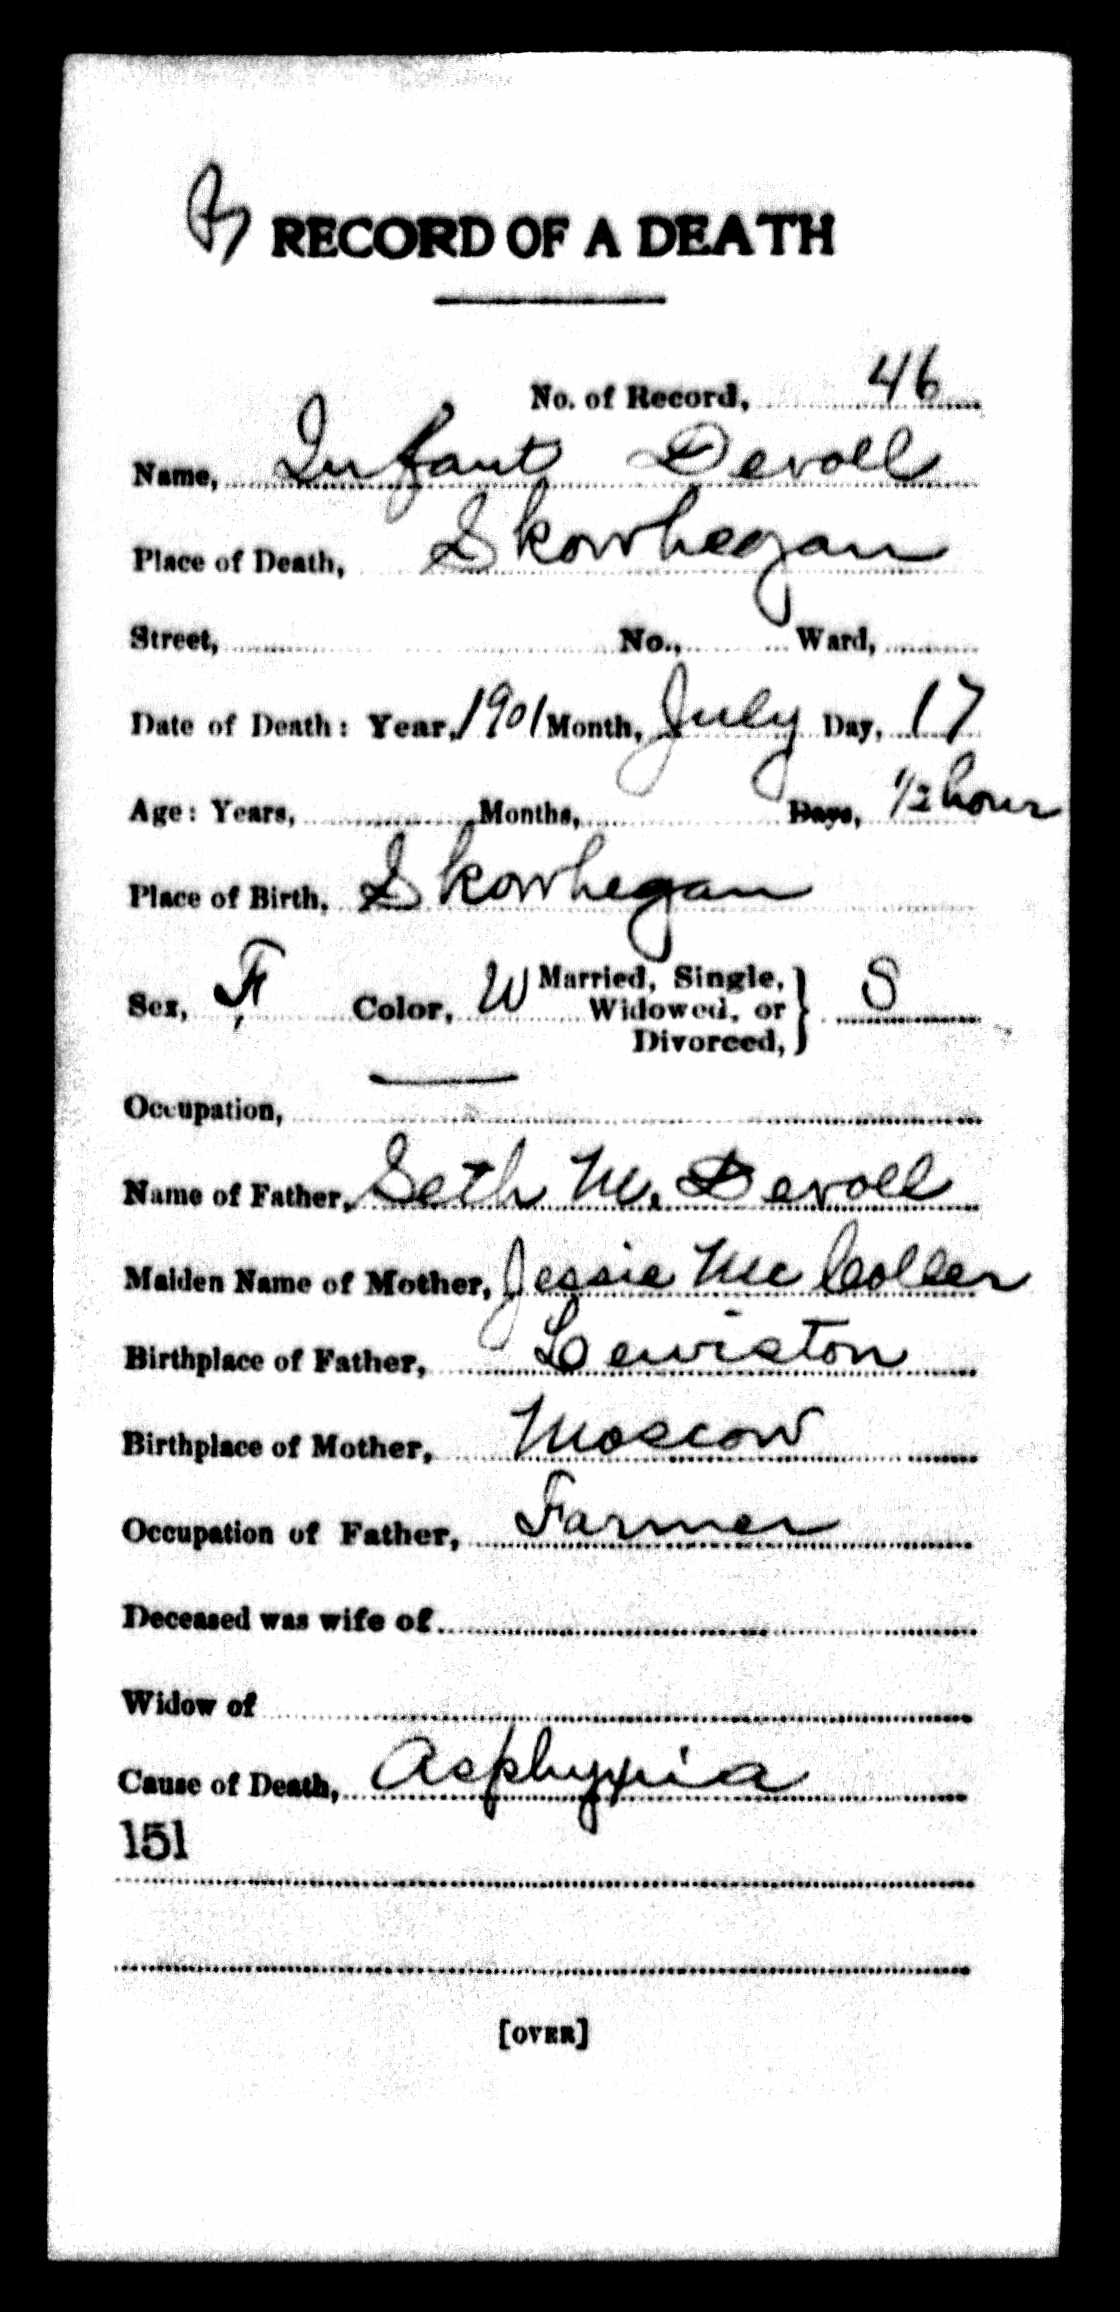 RECORD OF A DEATH
No. of Record, 46
Name, Infant Devoll
Place of Death, Skowhegan
Street, No., Ward,
Date of Death: Year, 1901 Month, July Day, 17
Age: Years, Months, Days, 1/2 hour
Place of Birth, Skowhegan
Sex, F, Color, W Married, Single, Widowed, or Divorced, } S
Occupation, —
Name of Father, Seth M. Devoll
Maiden Name of Mother, Jessie McColler
Birthplace of Father, Lewiston
Birthplace of Mother, Moscow
Occupation of Father, Farmer
Deceased was wife of
Widow of
Cause of Death, Asphyxia
151
[OVER]